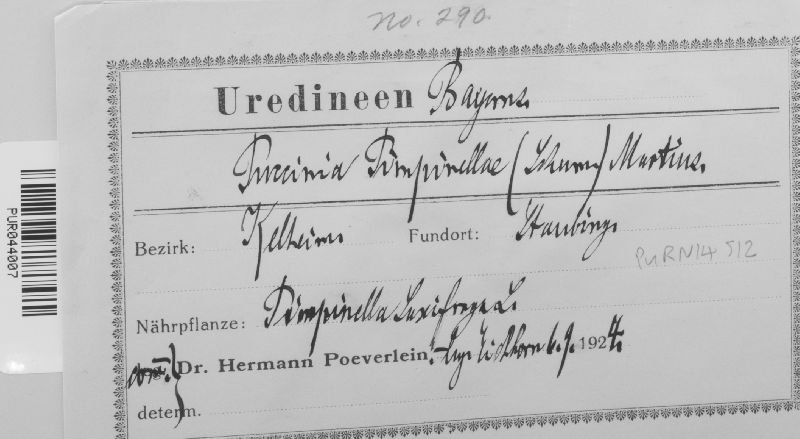 No. 290.
Uredineen Bayerns.
Puccinia Pimpinellae (Schum) Martius.
Bezirk: Kelheim Fundort: Staubing.
PUR044007
PURN14512
Nährpflanze: Pimpinella Saxifraga L.
Dr. Hermann Poeverlein. 6. 9. 1924.
determ.